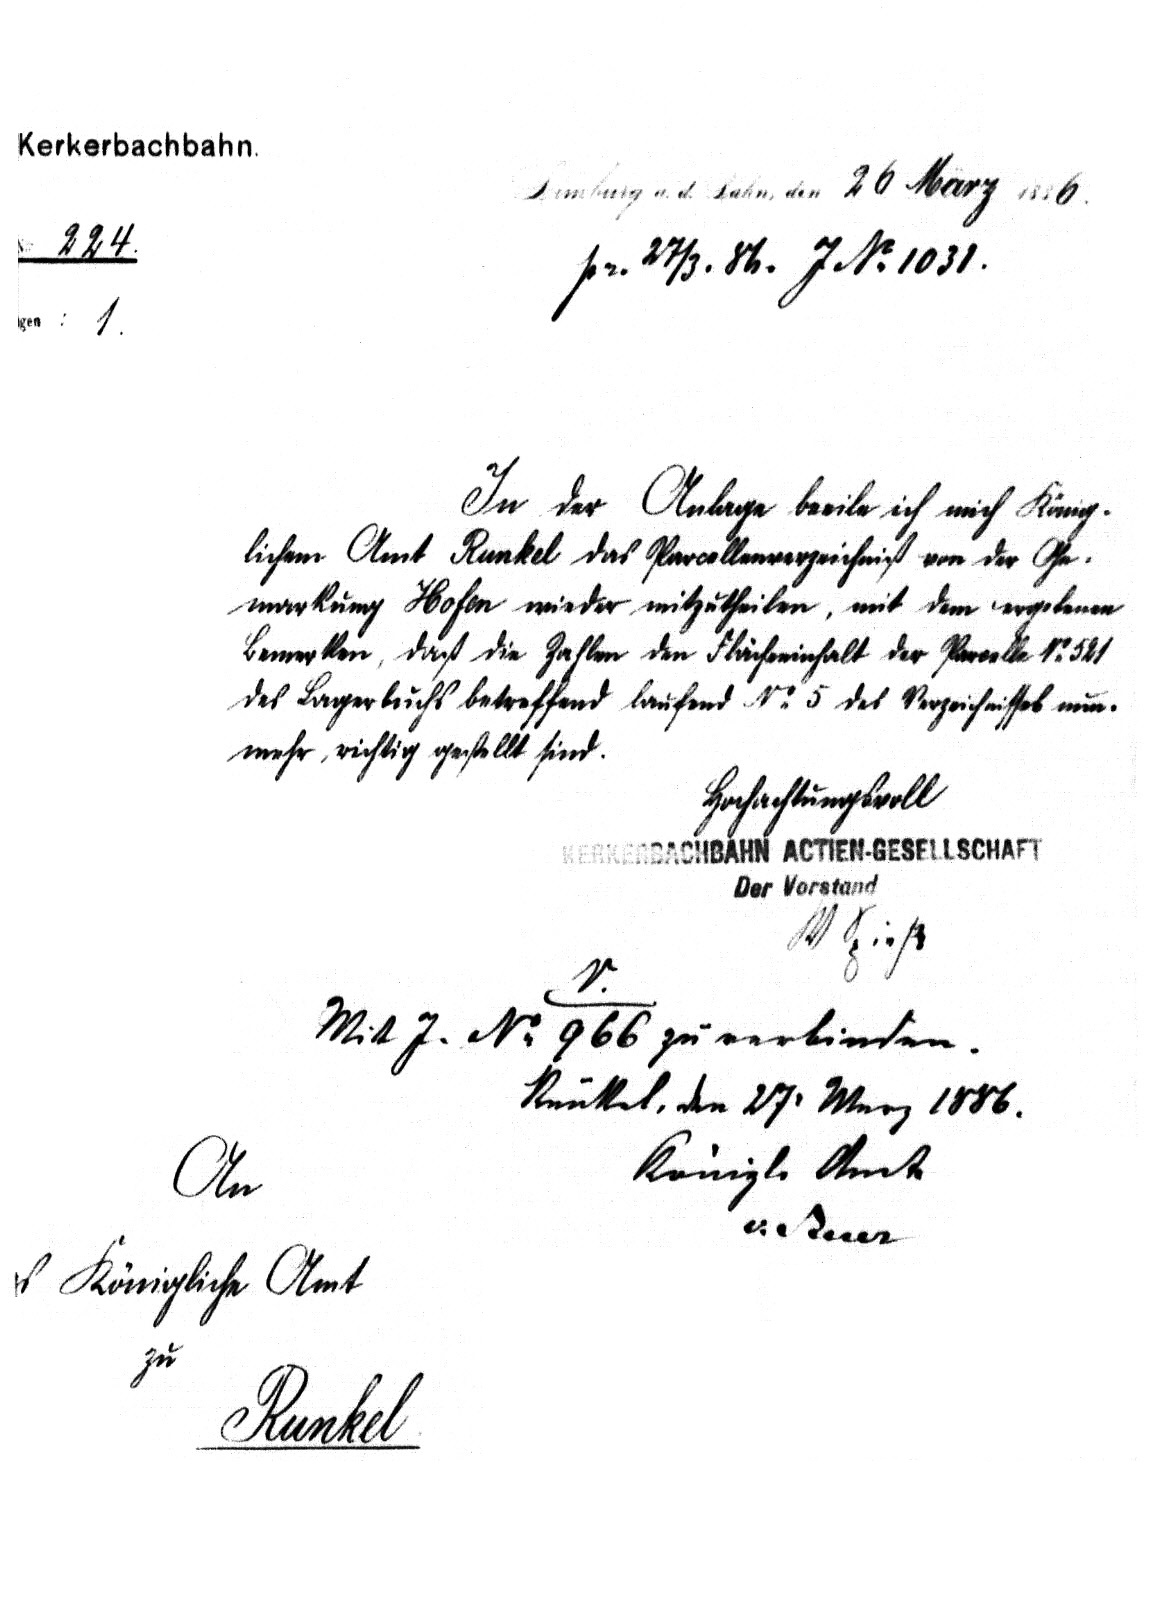 Kerkerbachbahn.
Limburg a. d. Lahn, den 26 März 1886.
No 224.
pr. 27/3. 86. J No. 1031.
gen : 1.
In der Anlage beeile ich mich König-
lichem Amt Runkel das Parcellenverzeichniß von der Ge-
markung Hofen wieder mitzutheilen, mit dem ergebenen
Bemerken, daß die Zahlen den Flächeninhalt der Parcelle No. 521
des Lagerbuchs betreffend laufend No. 5 des Verzeichnisses nun-
mehr richtig gestellt sind.
Hochachtungsvoll
KERKERBACHBAHN ACTIEN-GESELLSCHAFT
Der Vorstand
V.
Mit J. No. 966 zu verbinden.
Runkel, den 27. März 1886.
Königl. Amt
An
s Königliche Amt
zu
Runkel